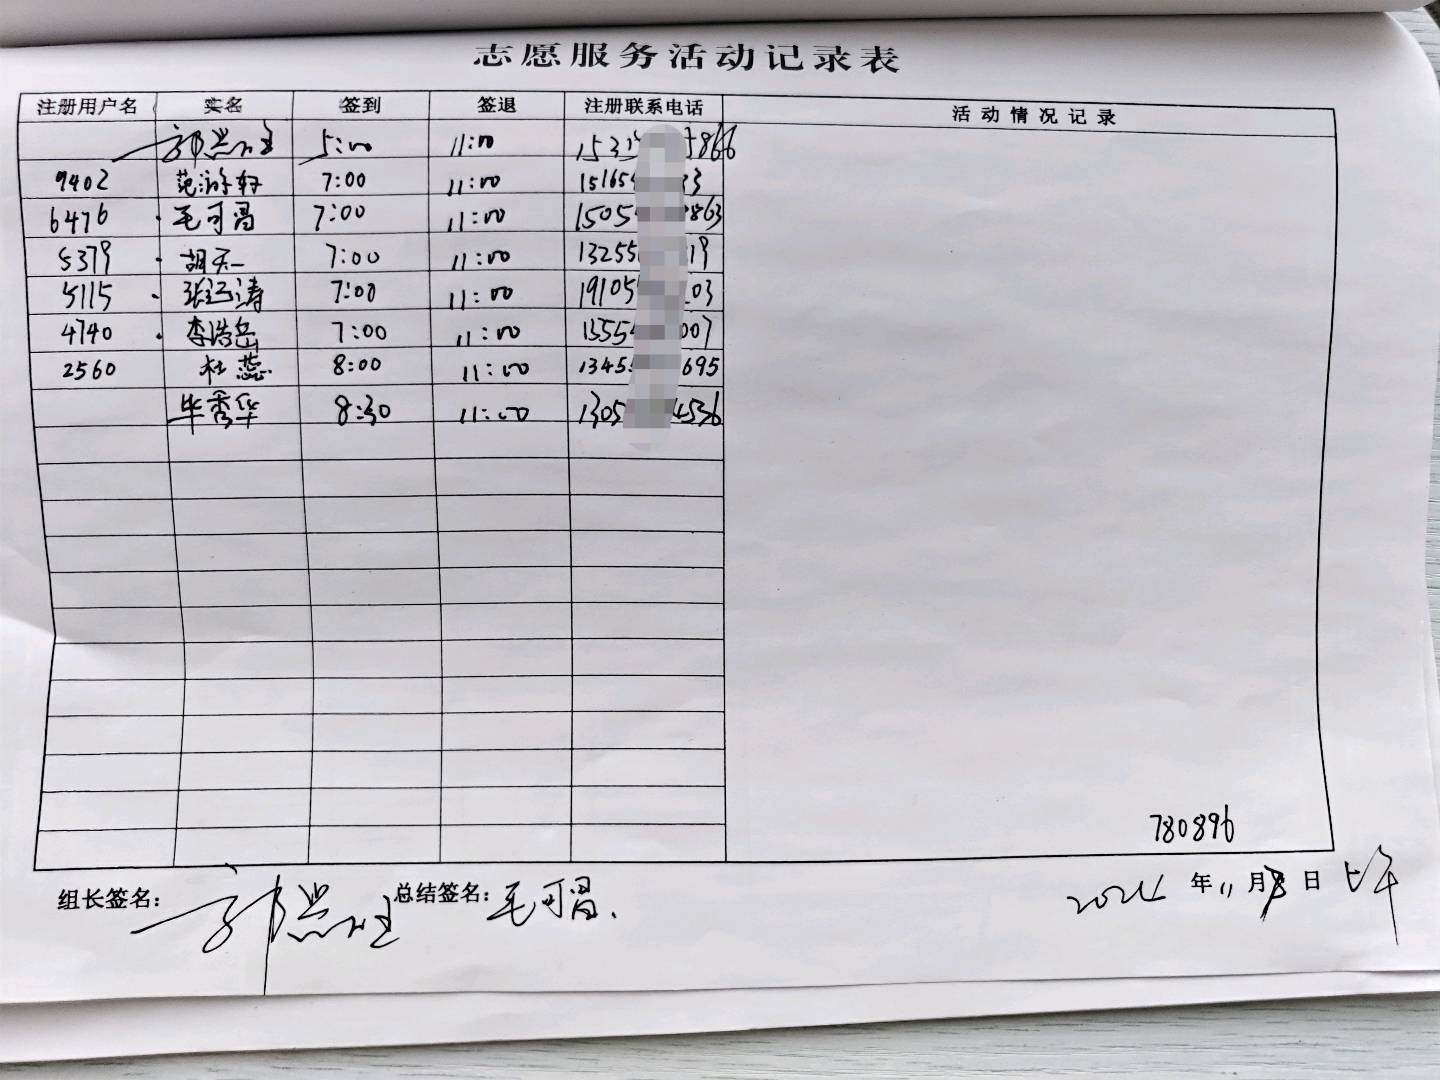 志愿服务活动记录表
注册用户名 实名 签到 签退 注册联系电话 活动情况记录
5:00 11:00 866
9402 7:00 11:00 15165 33
6476 毛可昌 7:00 11:00 1505 863
5379 胡天一 7:00 11:00 13255 19
5115 张远涛 7:00 11:00 19105 03
4740 李浩岳 7:00 11:00 1355 007
2560 杜蕊 8:00 11:00 1345 695
毕秀华 8:30 11:00 1305 4536
780896
组长签名: 总结签名: 毛可昌 2024年11月 日 上午